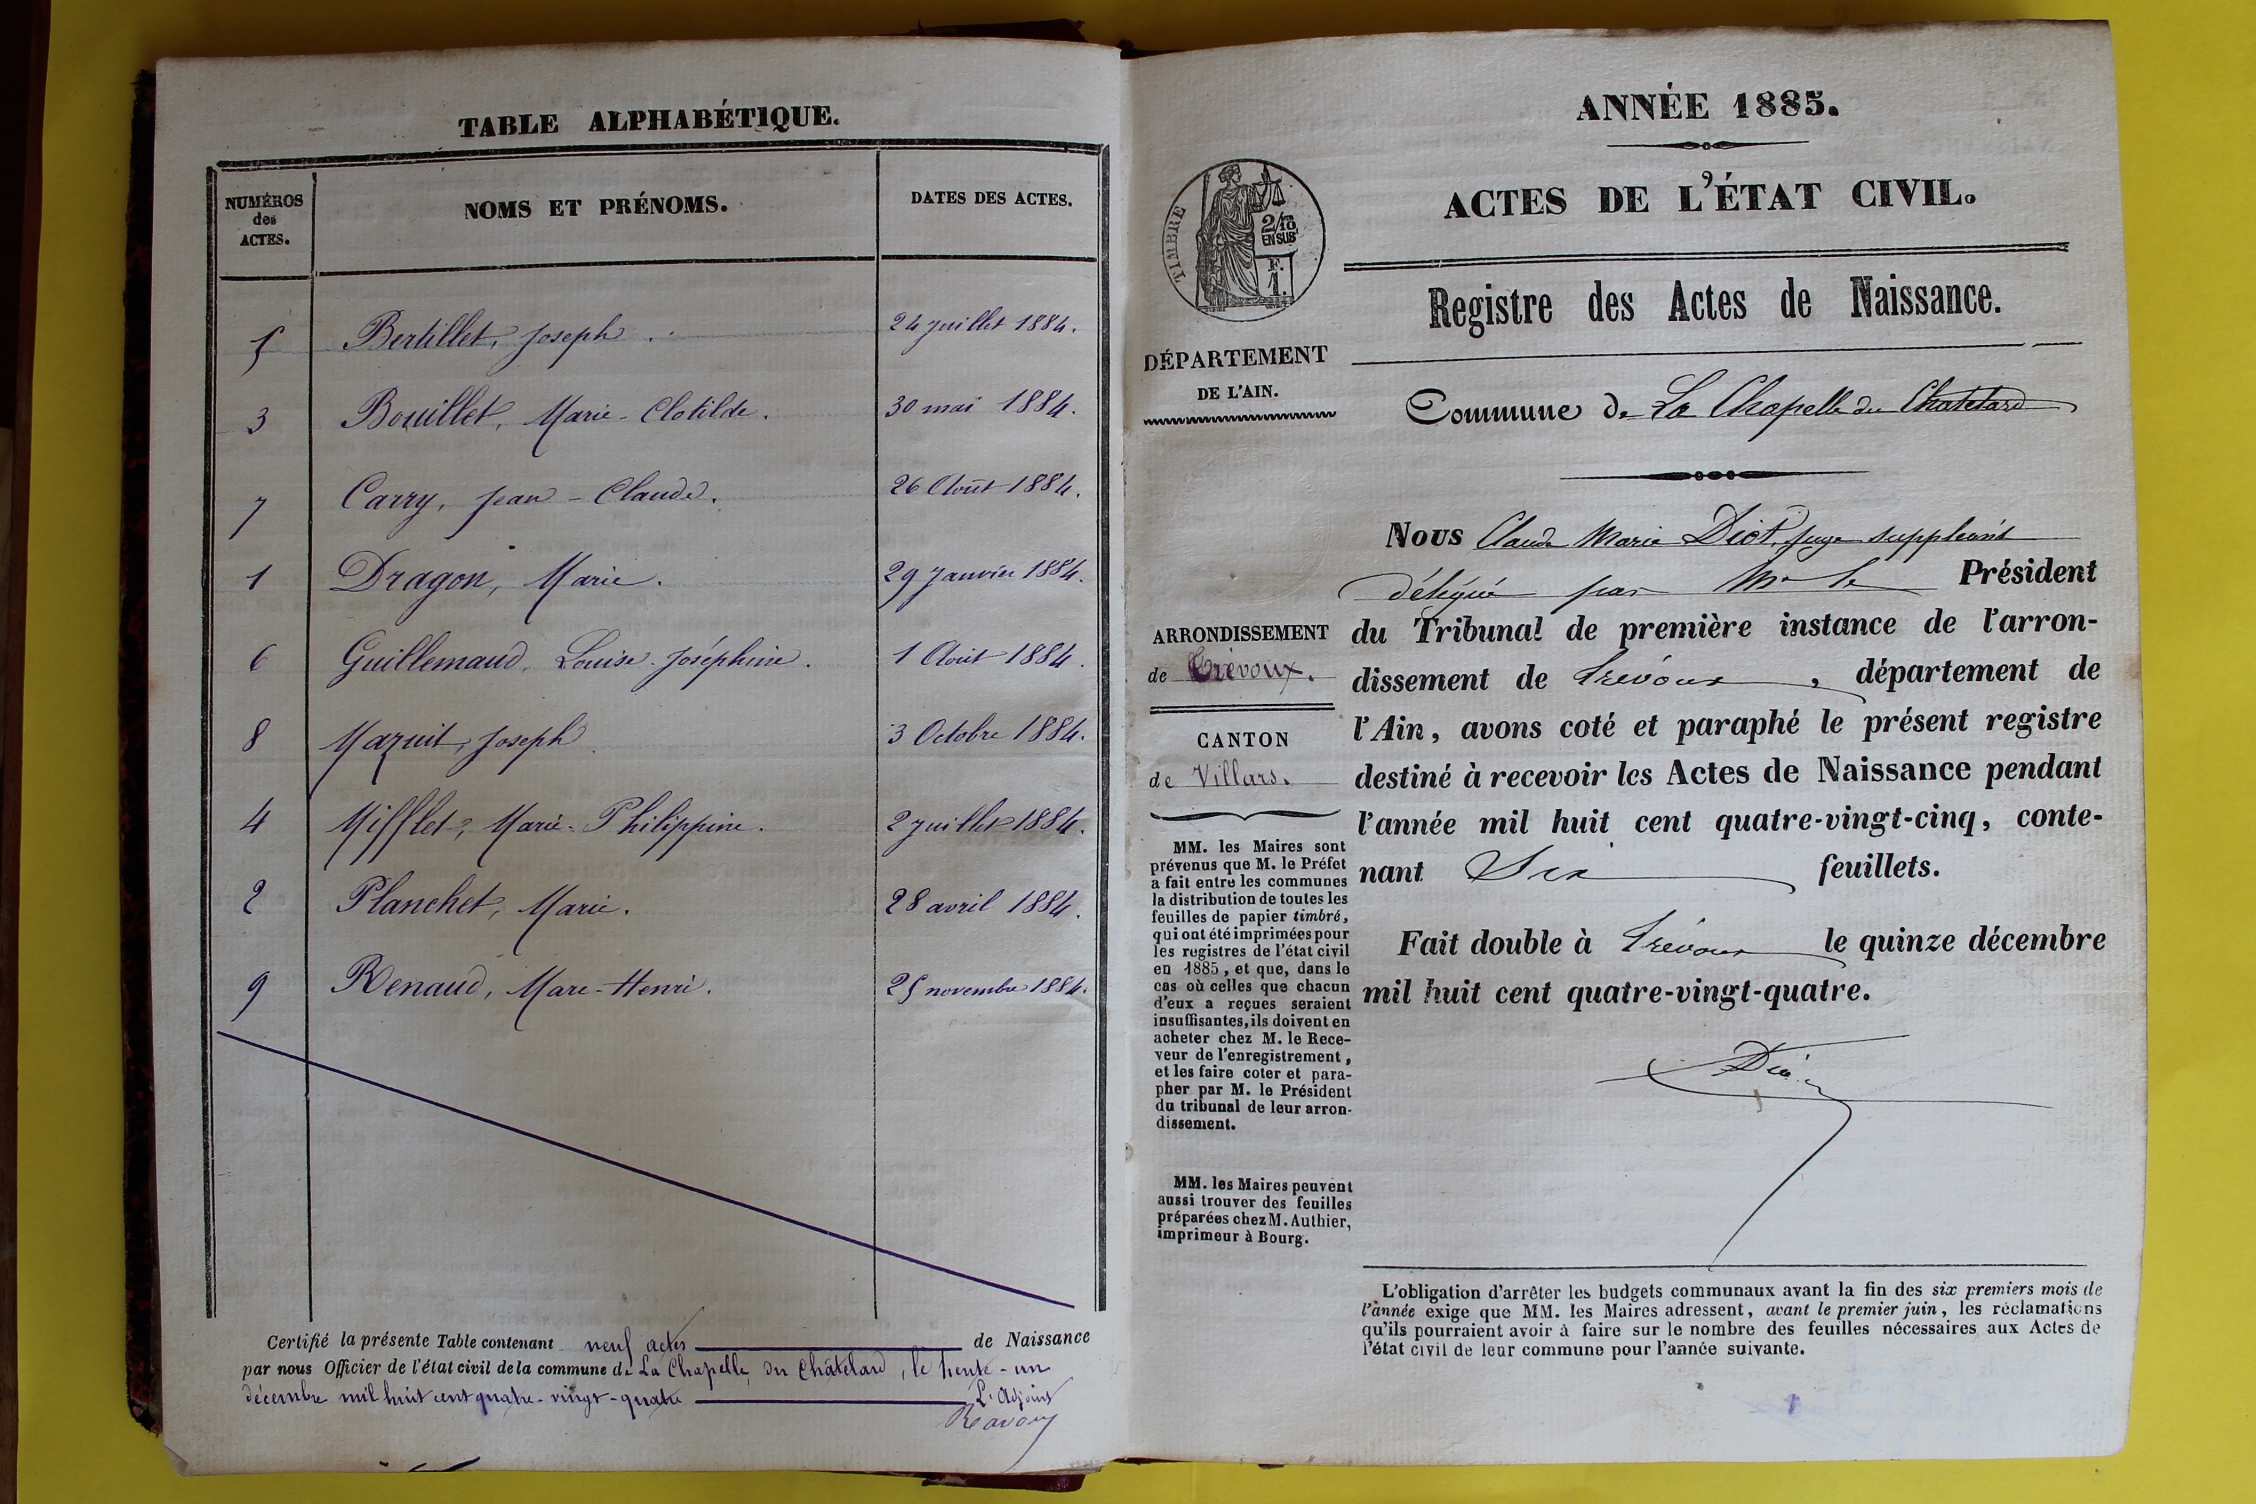 TABLE ALPHABÉTIQUE.
NUMÉROS
des
ACTES.
NOMS ET PRÉNOMS.
DATES DES ACTES.
5 Bertillet, Joseph. 24 juillet 1884.
3 Bouillet, Marie-Clotilde. 30 mai 1884.
7 Carry, Jean-Claude. 26 Août 1884.
1 Dragon, Marie. 29 Janvier 1884.
6 Guillemaud, Louise-Joséphine. 1 Août 1884.
8 Mazuit, Joseph 3 Octobre 1884.
4 Mifflet, Marie-Philippine. 2 juillet 1884.
2 Planchet, Marie. 28 avril 1884.
9 Renaud, Marc-Henri. 25 novembre 1884.
Certifié la présente Table contenant neuf actes de Naissance
par nous Officier de l'état civil de la commune de La Chapelle du Châtelard, le trente-un
décembre mil huit cent quatre-vingt-quatre L'Adjoint
ANNÉE 1885.
ACTES DE L'ÉTAT CIVIL.
TIMBRE
2/10
EN SUS
F.
1.
Registre des Actes de Naissance.
DÉPARTEMENT
DE L'AIN.
Commune de La Chapelle du Chatelard
Nous Claude Marie Diot, juge suppléant
délégué par Mr le Président
du Tribunal de première instance de l'arron-
dissement de Trévoux, département de
l'Ain, avons coté et paraphé le présent registre
destiné à recevoir les Actes de Naissance pendant
l'année mil huit cent quatre-vingt-cinq, conte-
nant Six feuillets.
Fait double à Trévoux le quinze décembre
mil huit cent quatre-vingt-quatre.
ARRONDISSEMENT
de Trévoux.
CANTON
de Villars.
MM. les Maires sont
prévenus que M. le Préfet
a fait entre les communes
la distribution de toutes les
feuilles de papier timbré,
qui ont été imprimées pour
les registres de l'état civil
en 1885, et que, dans le
cas où celles que chacun
d'eux a reçues seraient
insuffisantes, ils doivent en
acheter chez M. le Rece-
veur de l'enregistrement,
et les faire coter et para-
pher par M. le Président
du tribunal de leur arron-
dissement.
MM. les Maires peuvent
aussi trouver des feuilles
préparées chez M. Authier,
imprimeur à Bourg.
L'obligation d'arrêter les budgets communaux avant la fin des six premiers mois de
l'année exige que MM. les Maires adressent, avant le premier juin, les réclamations
qu'ils pourraient avoir à faire sur le nombre des feuilles nécessaires aux Actes de
l'état civil de leur commune pour l'année suivante.